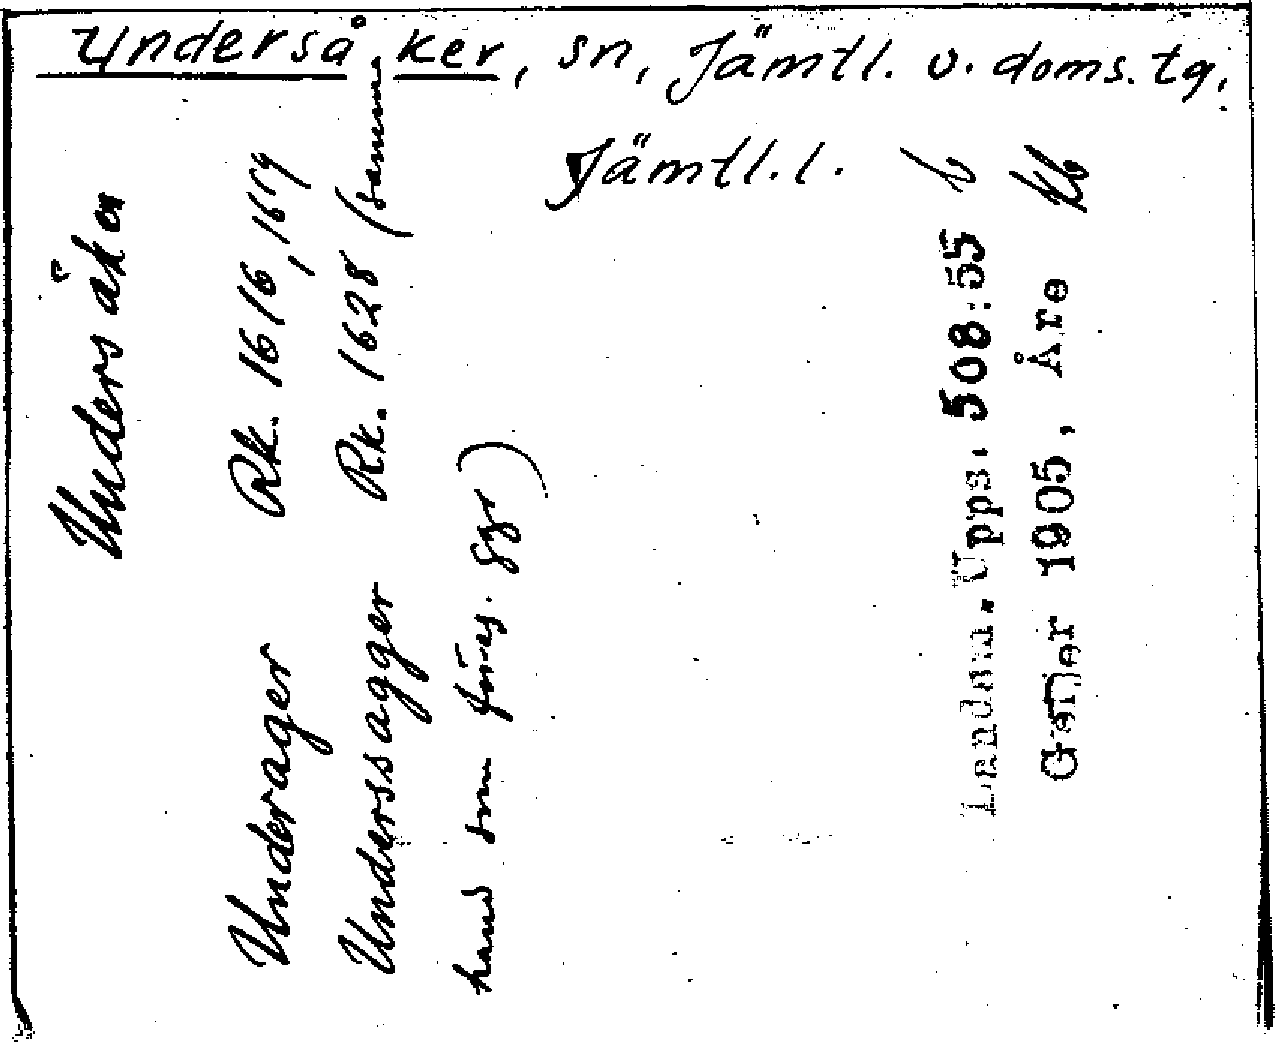 Undersåker, sn, Jämtl. v. doms. tg,
Jämtl. l.
Undersåker
Underager Rk. 1616, 1619
Underssagger Rk. 1628 (samma
hand som föreg.
Landsm. Upps. 508:55
Gener 1905, Åre